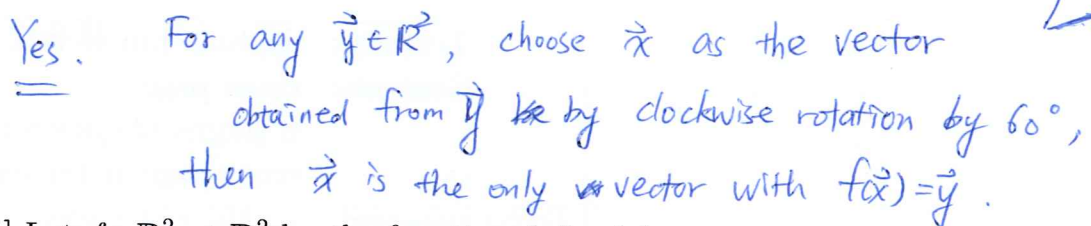 Yes. For any $\vec{y} \in \mathbb{R}^2$, choose $\vec{x}$ as the vector
obtained from $\vec{y}$ by clockwise rotation by 60°,
then $\vec{x}$ is the only vector with $f(\vec{x}) = \vec{y}$.